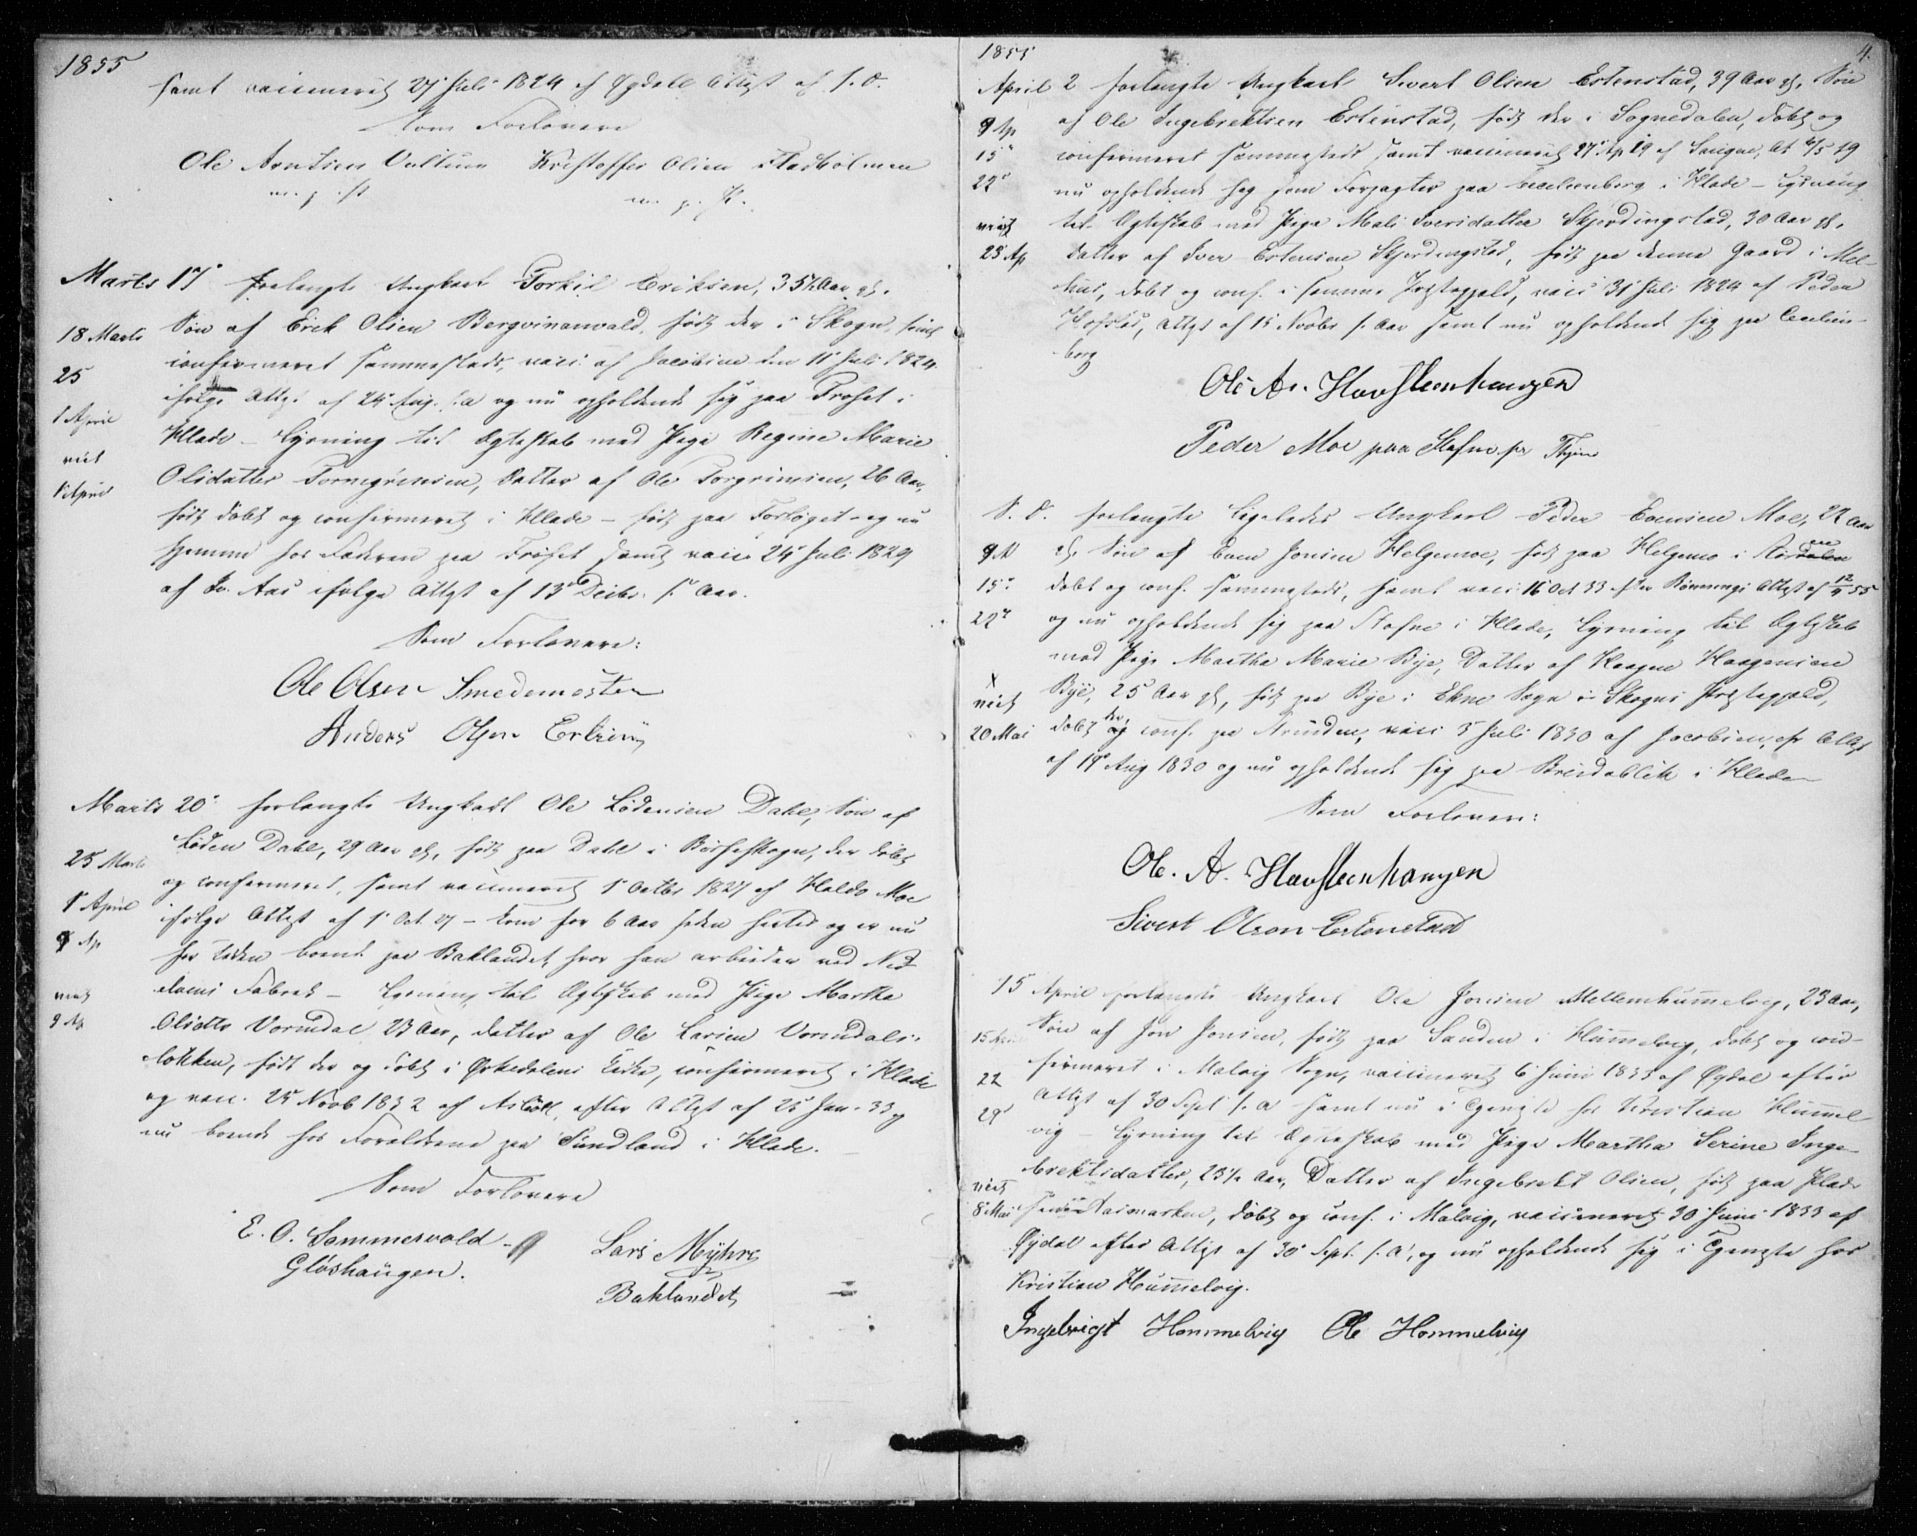 1855
samt vaccineret 27 Juli 1824 af Øydell Attest af s. D.
Som Forlovere
Ole Arntsen Kristoffer Olsen Fladholmen
m. p. P. m. p. P.
Marts 17 forlangte Ungkarl Torkil Eriksen, 35½ Aar gl.
18 Marts Søn af Erik Olsen født der i Skogn, samt
confirmeret sammesteds, vacc: af Jacobsen den 11 Juli 1824
25 ifølge Attest af 24 Aug. s. a og nu opholdende sig paa Froset i
1 April Hlade – Lysning til Egteskab med Pige Regine Marie
viet Olsdatter Datter af Ole Torgrimsen, 26 Aar,
født døbt og confirmeret i Hlade – født paa og nu
hjemme hos Faderen paa Froset, samt vacc 24 Juli 1829
af Aas ifølge Attest af 13 Decbr. s. Aar.
Som Forlovere:
Ole Olsen Smedemester
Anders Olsen
Marts 20 forlangte Ungkarl Ole Lødensen Dahl, Søn af
25 Marts Løden Dahl, 29 Aar gl, født paa Dahl i Børseskogn, der døbt
og confirmeret, samt vaccineret 1 Octbr 1827 af Haldo Moe
1 April ifølge Attest af 1 Oct. 27 – kom for 6 Aar siden hertil og er nu
9 Ap for Tiden boende paa Baklandet, hvor han arbeider ved
Fabrik – Lysning til Egteskab med Pige Martha
viet
9 Ap Olsdtr Vormdal 23 Aar, Datter af Ole Larsen Vormdals-
løkken, født der og døbt i Ørkedalens Kirke, confirmeret i Hlade
og vacc. 25 Novb 1832 af efter Attest af 25 Jan. 33 og
nu boende hos Forældrene paa Sundland i Hlade.
Som Forlovere
E. O. Sommervold Lars Myhre
Gløshaugen. Baklandet
1855 4.
April 2 forlangte Ungkarl Sivert Olsen Estenstad, 39 Aar gl. Søn
9 Ap af Ole Ingebrektsen Estenstad, født der i Sognedalen, døbt og
15 confirmeret sammesteds samt vaccineret 27 Ap 19 af
22 nu opholdende sig som Forpagter paa Cecilienborg i Hlade – Lysning
viet til Egteskab med Pige Mali Iversdatter Skjerdingstad, 30 Aar gl.
23 Ap Datter af Iver Estensen Skjerdingstad, født paa denne Gaard i Mel-
hus, døbt og conf. i samme Præstegjeld, vacc 31 Juli 1824 af Peder
Hofstad, Attest af 15 Novbr s. Aar samt nu opholdende sig paa Cecilien-
borg
Ole A. Havsteenhaugen
Peder Moe paa Stafne
S. D. forlangte Ligeledes Ungkarl Peder Evensen Moe, 22 Aar
gl, Søn af Even Jonsen Helgemoe, født paa Helgemo i
15 døbt og conf. sammesteds, samt vacc 16 Oct 33 efter Rønnings Attest af 55
22 og nu opholdende sig paa Stafne i Hlade, Lysning til Egteskab
med Pige Martha Marie Bye, Datter af Haagen Haagensen
x
viet Bye, 25 Aar gl, født paa Bye i Ekne Sogn i Skogns Præstegjeld,
20 Mai døbt der, og conf. vacc 3 Juli 1830 af Jacobsen, Attest
af 14 Aug 1830 og nu opholdende sig paa Bredablik i Hlade
Som Forlovere:
Ole. A. Havsteenhaugen
Sivert Olson Estenstad
15 April forlangte Ungkarl Ole Jonsen Mellemhummelvig, 23 Aar,
15 April Søn af Jon Jonsen, født paa Sanden i Hummelvig, døbt og con-
22 firmeret i Malvig Sogn, vaccineret 6 Juni 1833 af Øydal efter
29 Attest af 30 Sept s. a samt nu i hos Kristian Hummel-
vig – Lysning til Egteskab med Pige Martha Serine Inge-
viet brektsdatter, 25½ Aar, Datter af Ingebrekt Olsen, født paa Hlade
8 Mai døbt og conf. i Malvig, vaccineret 30 Juni 1833 af
Øydal efter Attest af 30 Sept. s. A, og nu opholdende sig i hos
Kristian Hummelvig.
Ingebrigt Hommelvig Ole Hommelvig